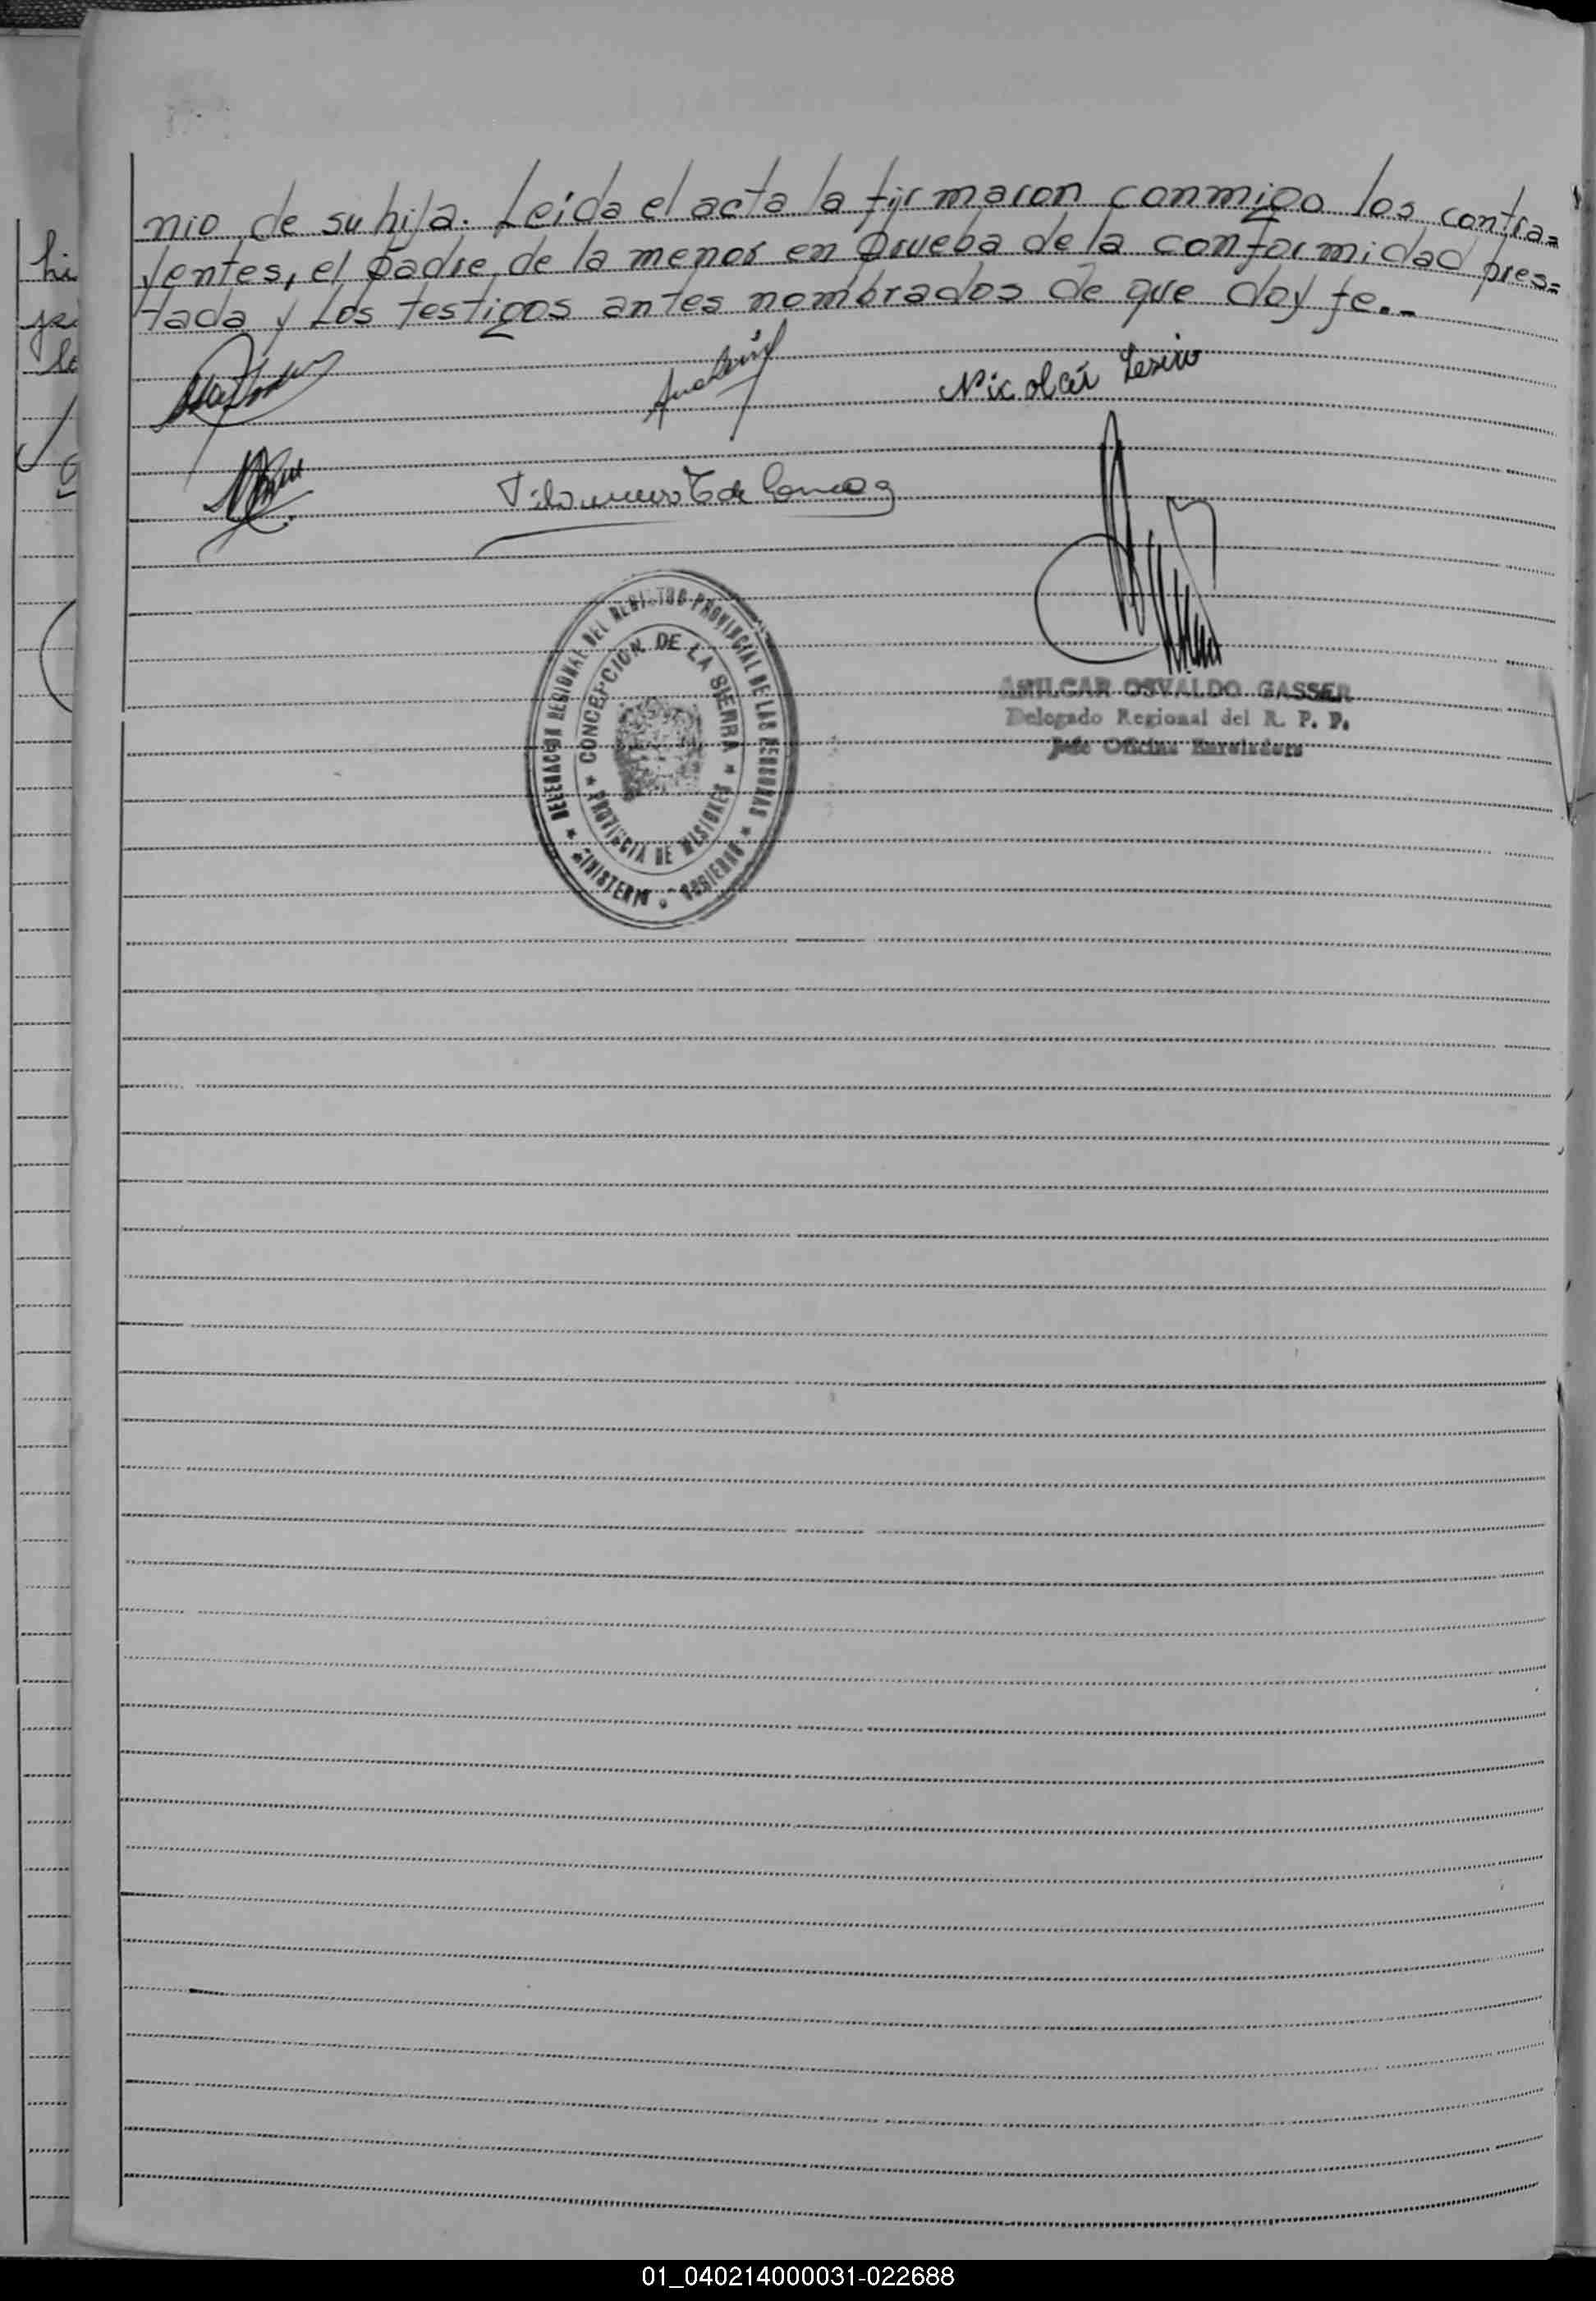 nio de su hija. Leída el acta la firmaron conmigo los contra=
yentes, el padre de la menor en prueba de la conformidad pres=
tada y los testigos antes nombrados de que doy fe.-
Nicolás
DELEGACION REGIONAL DEL REGISTRO PROVINCIAL DE LAS PERSONAS
CONCEPCION DE LA SIERRA
PROVINCIA DE MISIONES
MINISTERIO GOBIERNO
AMILCAR OSVALDO GASSER
Delegado Regional del R. P. P.
Jefe Oficina Enroladora
hi
01_040214000031-022688